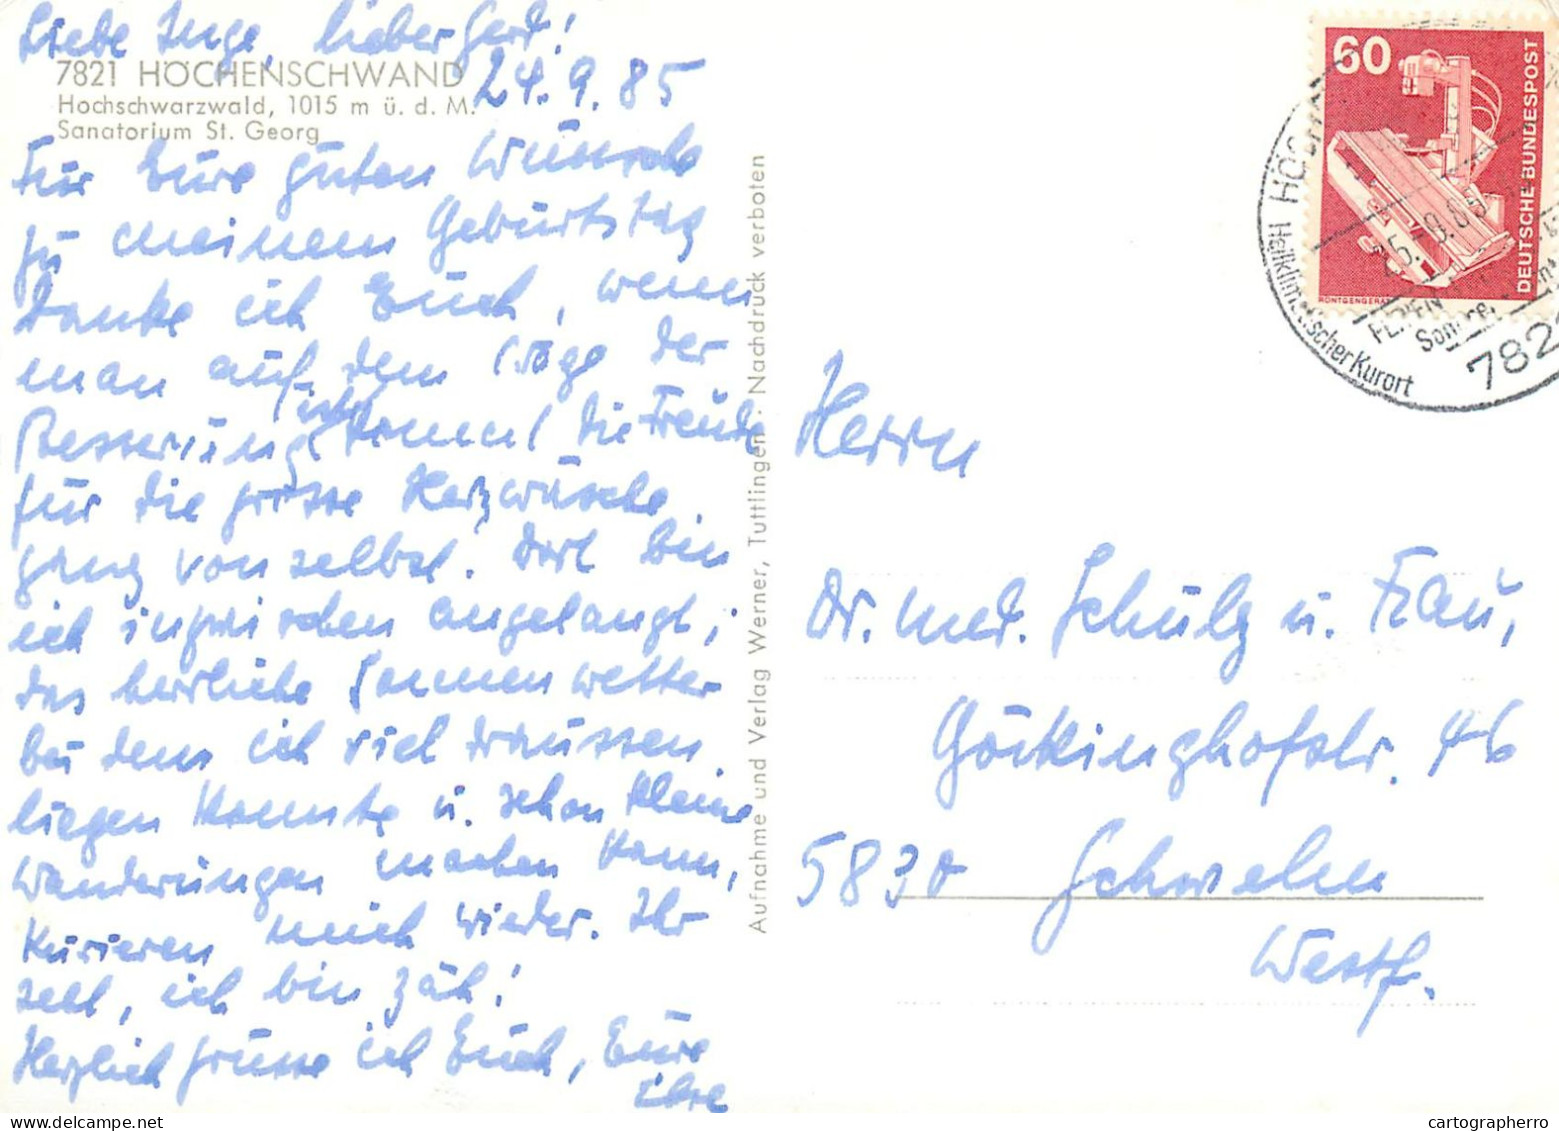 Liebe Inge, lieber Gert!
7821 HÖCHENSCHWAND
24.9.85
Hochschwarzwald, 1015 m ü. d. M.
Sanatorium St. Georg
Für Eure guten Wünsche
zu meinem Geburtstag
danke ich Euch, wenn
man auf dem Wege der
Besserung ist, kommt die Freude
für die grosse Herzwäsche
ganz von selbst. Dort bin
ich inzwischen angelangt,
das herrliche Sonnenwetter
bei dem ich viel draussen
liegen konnte u. schon kleine
Wanderungen machen kann,
kurieren mich wieder. Ihr
seht, ich bin zäh!
Herzlich grüsse ich Euch, Eure
Aufnahme und Verlag Werner, Tuttlingen. Nachdruck verboten
60
DEUTSCHE BUNDESPOST
Heilklimatischer Kurort
7821
Herrn
Dr. med. Schulz u. Frau,
Göckinghofstr. 46
5830 Schwelm
Westf.
cartographerro